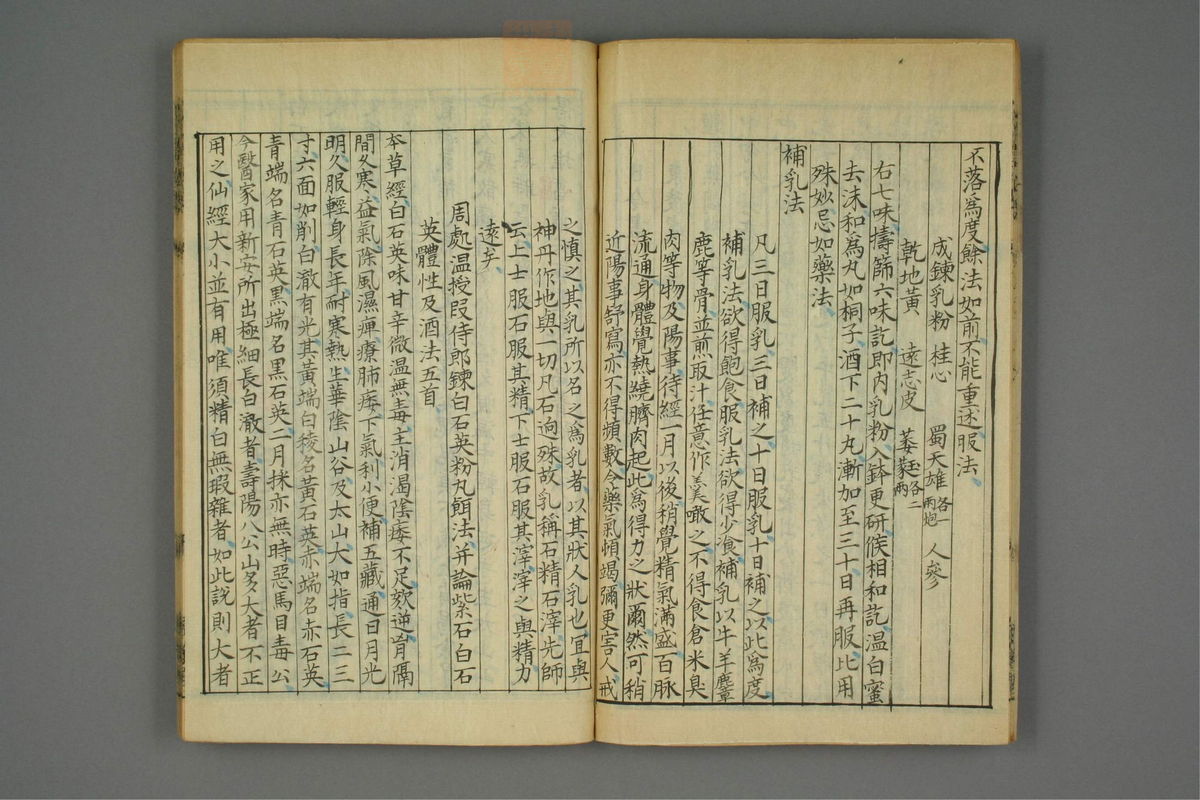 不落為度餘法如前不能重述服法
成鍊乳粉 桂心 蜀天雄各一兩炮 人參
乾地黃 遠志皮 萎蕤各二兩
右七味擣篩六味訖即內乳粉入鉢更研候相和訖温白蜜
去沫和為丸如桐子酒下二十丸漸加至三十日再服比用
殊妙忌如藥法
補乳法
凡三日服乳三日補之十日服乳十日補之以此為度
補乳法欲得飽食服乳法欲得少食補乳以牛羊麞
鹿等骨並煎取汁任意作羹噉之不得食倉米臭
肉等物及陽事待經一月以後稍覺精氣滿盛百脉
流通身體覺熱繞臍肉起此為得力之狀爾然可稍
近陽事舒寫亦不得頻數令藥氣頓竭彌更害人戒
之慎之其乳所以名之為乳者以其狀人乳也宜與
神丹作地與一切凡石逈殊故乳稱石精石滓先師
云上士服石服其精下士服石服其滓滓之與精力
遠矣
周處温授叚侍郎鍊白石英粉丸餌法并論紫石白石
英體性及酒法五首
本草經白石英味甘辛微温無毒主消渴陰痿不足欬逆胷隔
間久寒益氣除風濕痺療肺痿下氣利小便補五藏通日月光
明久服輕身長年耐寒熱生華陰山谷及太山大如指長二三
寸六面如削白澈有光其黃端白稜名黃石英赤端名赤石英
青端名青石英黑端名黑石英二月採亦無時惡馬目毒公
今醫家用新安所出極細長白澈者壽陽八公山多大者不正
用之仙經大小並有用唯須精白無瑕雜者如此說則大者